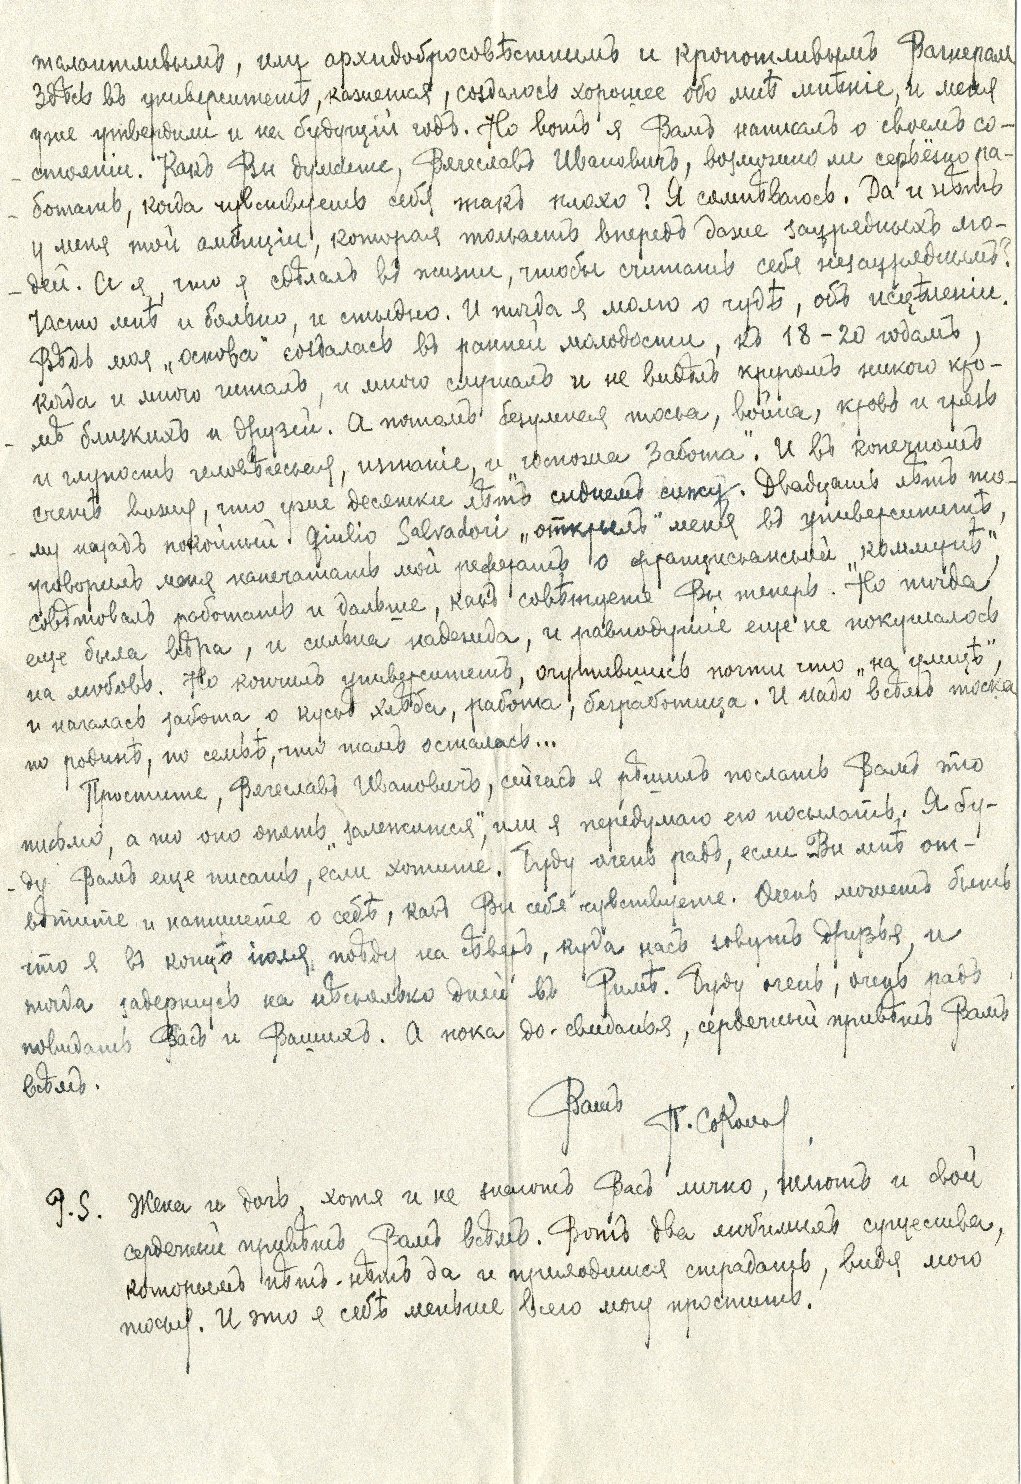 талантливымъ, или архидобросовѣстнымъ и кропотливымъ Вагнеромъ
Здѣсь въ университетѣ, кажется, создалось хорошее обо мнѣ мнѣніе, и меня
уже утвердили и на будущій годъ. Но вотъ я Вамъ написалъ о своемъ со-
стояніи. Какъ Вы думаете, Вячеславъ Ивановичъ, возможно ли серьёзно ра-
ботать, когда чувствуешь себя такъ плохо? Я сомнѣваюсь. Да и нѣтъ
у меня той амбиціи, которая толкаетъ впередъ даже заурядныхъ лю-
дей. А я, что я сдѣлалъ въ жизни, чтобы считать себя незауряднымъ?
Часто мнѣ и больно, и стыдно. И тогда я молю о чудѣ, объ исцѣленіи.
Вѣдь моя „основа“ создалась въ ранней молодости, къ 18-20 годамъ,
когда и много читалъ, и много слушалъ и не видѣлъ кругомъ никого кро-
мѣ близкихъ и друзей. А потомъ безумная тоска, война, кровь и грязь
и глупость человѣческая, изгнаніе, и „госпожа Забота“. И въ конечномъ
счетѣ вышло, что уже десятки лѣтъ сиднемъ сижу. Двадцать лѣтъ то-
му назадъ покойный Giulio Salvadori „открылъ“ меня въ университетѣ,
уговорилъ меня напечатать мой рефератъ о францисканской „коммунѣ“,
совѣтовалъ работать и дальше, какъ совѣтуете Вы теперь. Но тогда
еще была вѣра, и сильна надежда, и равнодушіе еще не покушалось
на любовь. Но кончилъ университетъ, очутившись почти что „на улицѣ“,
и началась забота о кускѣ хлѣба, работа, безработица. И надо всѣмъ тоска
по родинѣ, по семьѣ, что тамъ осталась...
Простите, Вячеславъ Ивановичъ, сейчасъ я рѣшилъ послать Вамъ это
письмо, а то оно опять „залежится“, или я передумаю его посылать. Я бу-
ду Вамъ еще писать, если хотите. Буду очень радъ, если Вы мнѣ от-
вѣтите и напишете о себѣ, какъ Вы себя чувствуете. Очень можетъ быть
что я въ концѣ іюля поѣду на сѣверъ, куда насъ зовутъ друзья, и
тогда задержусь на нѣсколько дней въ Римѣ. Буду очень, очень радъ
повидать Васъ и Вашихъ. А пока до-свиданья, сердечный привѣтъ Вамъ
всѣмъ.
Вашъ
П. Соколов
P.S. Жена и дочь, хотя и не знаютъ Васъ лично, шлютъ и свой
сердечный привѣтъ Вамъ всѣмъ. Вотъ два любимыхъ существа,
которымъ нѣтъ-нѣтъ да и приходится страдать, видя мою
тоску. И это я себѣ меньше всего могу простить.